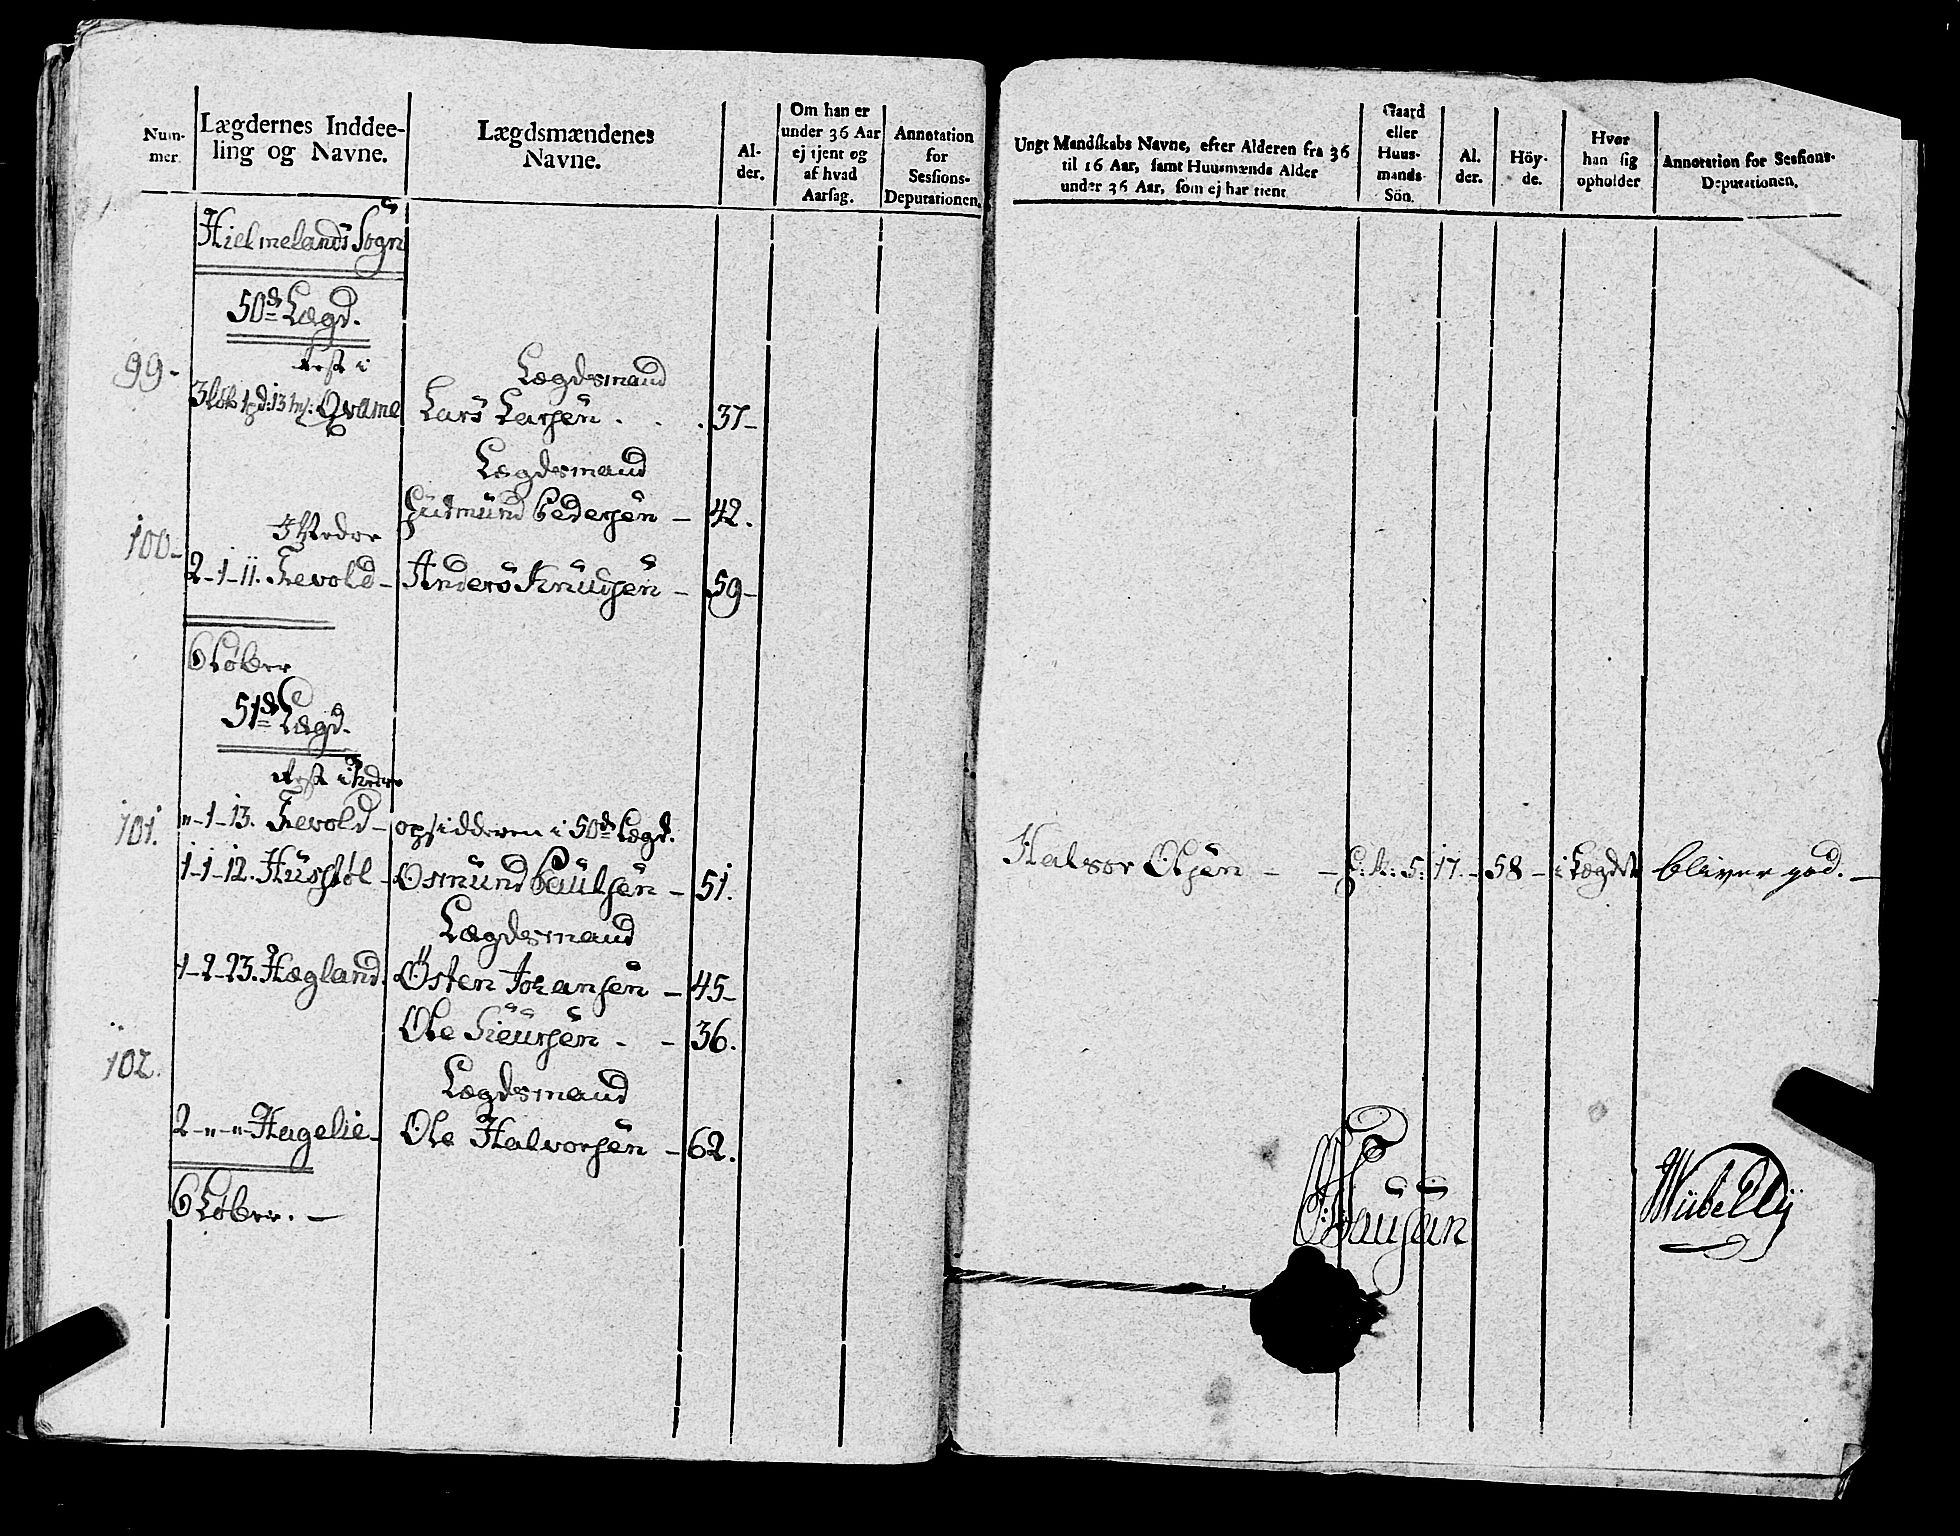 Num-
mer.
Lægdernes Inddee-
ling og Navne.
Lægdsmændenes
Navne.
Al-
der.
Om han er
under 36 Aar
ej tjent og
af hvad
Aarsag.
Annotation
for
Sessions-
Deputationen.
Hielmelands Sogn
50de Lægd.
Rest i
99-
Lægdsmand
3 løb 1 pd: 13 mk: Qvame
Lars Larsen . . . 37-
Lægdsmand
Gudmund Pedersen - 42.
100-
2-1-11. Tevold-
Anders Knudsen - 59-
6 Løber
51de Lægd.
Rest i
101.
"-1-13. Tevold-
opsidderen i 50de Lægd.
1-1-12. Husstøl-
Osmund Paulsen - 51.
Lægdsmand
1-2-23. Hægland.
Østen Johansen - 45-
Ole - - 36.
102.
Lægdsmand
2-"-"-Hagelie-
Ole Halvorsen - 62.
6 Løber. -
Ungt Mandskabs Navne, efter Alderen fra 36
til 16 Aar, samt Huusmænds Alder
under 36 Aar, som ej har tient
Gaard
eller
Huus-
mands-
Sön.
Al.
der.
Höy-
de.
Hvor
han sig
opholder
Annotation for Sessions-
Deputationen.
Halvor Olsen - - G: k: S: 17. - 58 - i Lægdet bliver god. -